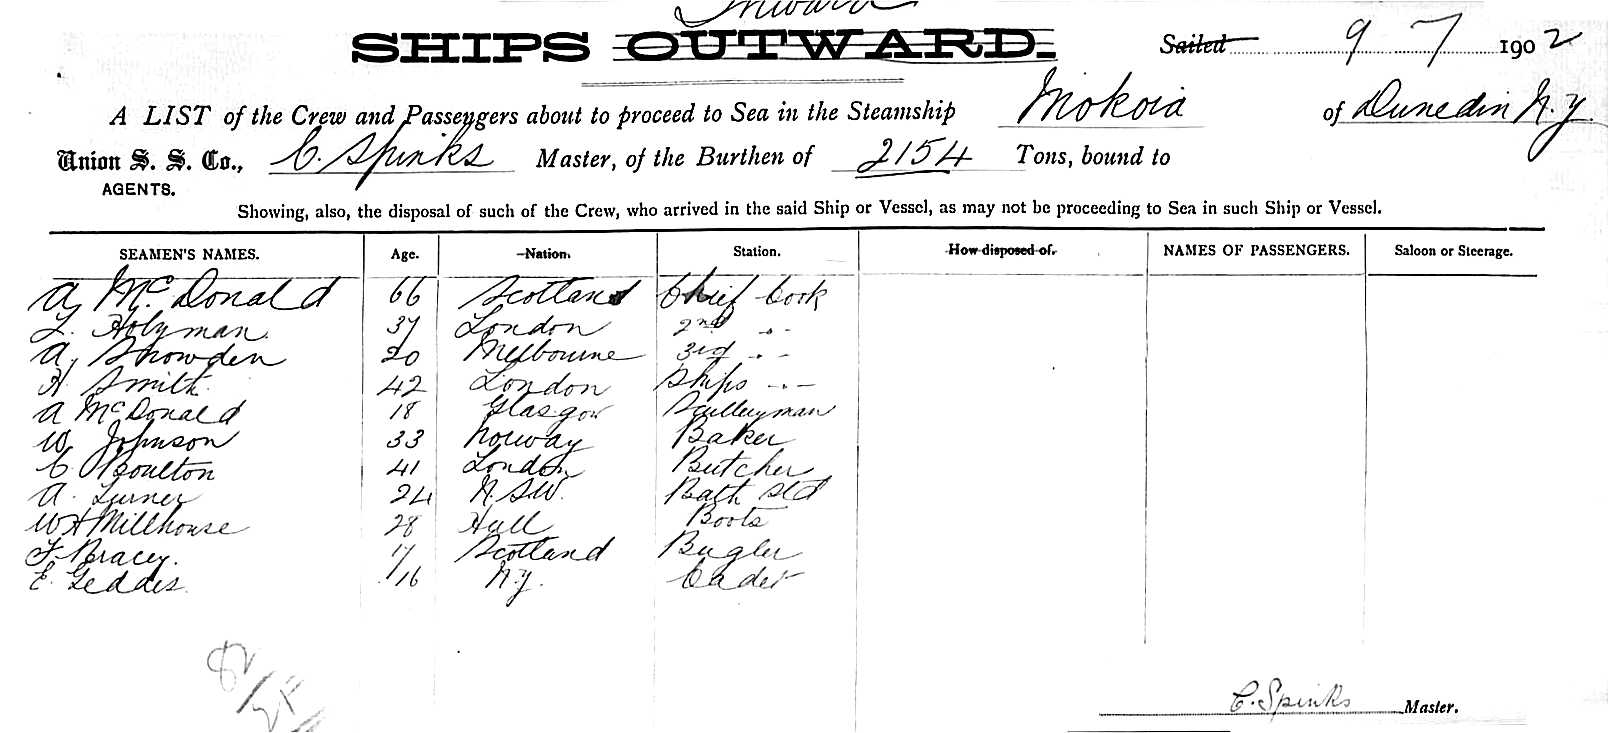 Inward
SHIPS OUTWARD.
Sailed 9 7 1902
A LIST of the Crew and Passengers about to proceed to Sea in the Steamship Mokoia of Dunedin N.Z.
Union S. S. Co., C. Spinks Master, of the Burthen of 2154 Tons, bound to
AGENTS.
Showing, also, the disposal of such of the Crew, who arrived in the said Ship or Vessel, as may not be proceeding to Sea in such Ship or Vessel.
SEAMEN'S NAMES. Age. Nation. Station. How disposed of. NAMES OF PASSENGERS. Saloon or Steerage.
A, McDonald 66 Scotland Chief Cook
Holyman. 37 London 2nd " -
A, Snowden 20 Melbourne 3rd " -
H Smith. 42 London Ships " -
A McDonald 18 Glasgow Sculleryman
W Johnson 33 Norway Baker
C Boulton 41 London Butcher
A. Turner 24 N.S.W. Bath Std
W H Millhouse 28 Hull Boots
F. Bracey. 17 Scotland Bugler
E. Geddes. 16 N.Z. Cadet
C. Spinks Master.